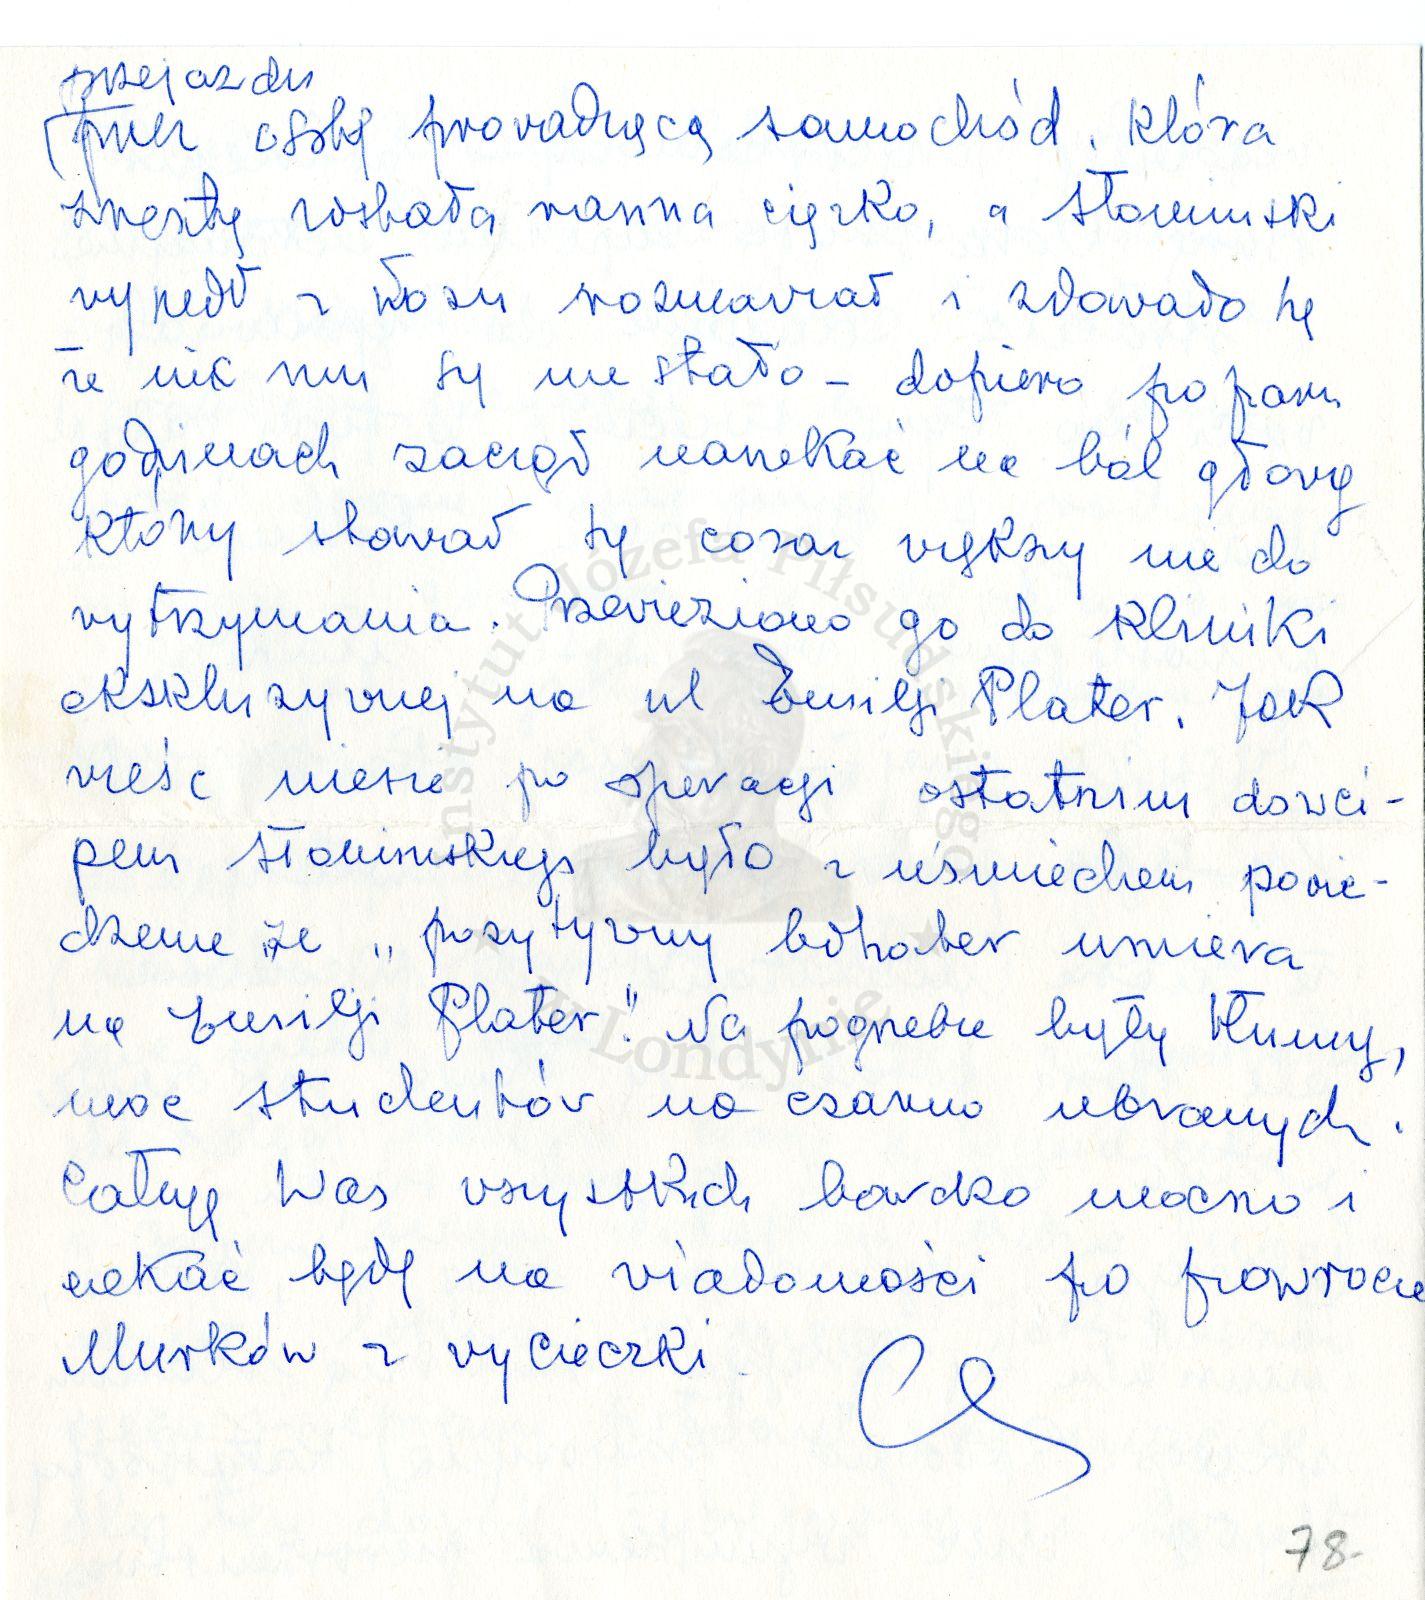 przejazdu
(przez osobę prowadzącą samochód. Która
zresztą została ranna ciężko, a Słonimski
wyszedł z wozu rozmawiał i zdawało się
że nic mu się nie stało - dopiero po paru
godzinach zaczął narzekać na ból głowy
który stawał się coraz większy nie do
wytrzymania. Przewieziono go do kliniki
ekskluzywnej na ul Emilji Plater. Jak
wieść niesie po operacji ostatnim dowci-
pem Słonimskiego było z uśmiechem powie-
dzenie że „pozytywny bohater umiera
na Emilji Plater". Na pogrzebie były tłumy,
moc studentów na czarno ubranych.
Całuję Was wszystkich bardzo mocno i
czekać będę na wiadomości po powrocie
Murków z wycieczki.
78-
Instytut Józefa Piłsudskiego
w Londynie